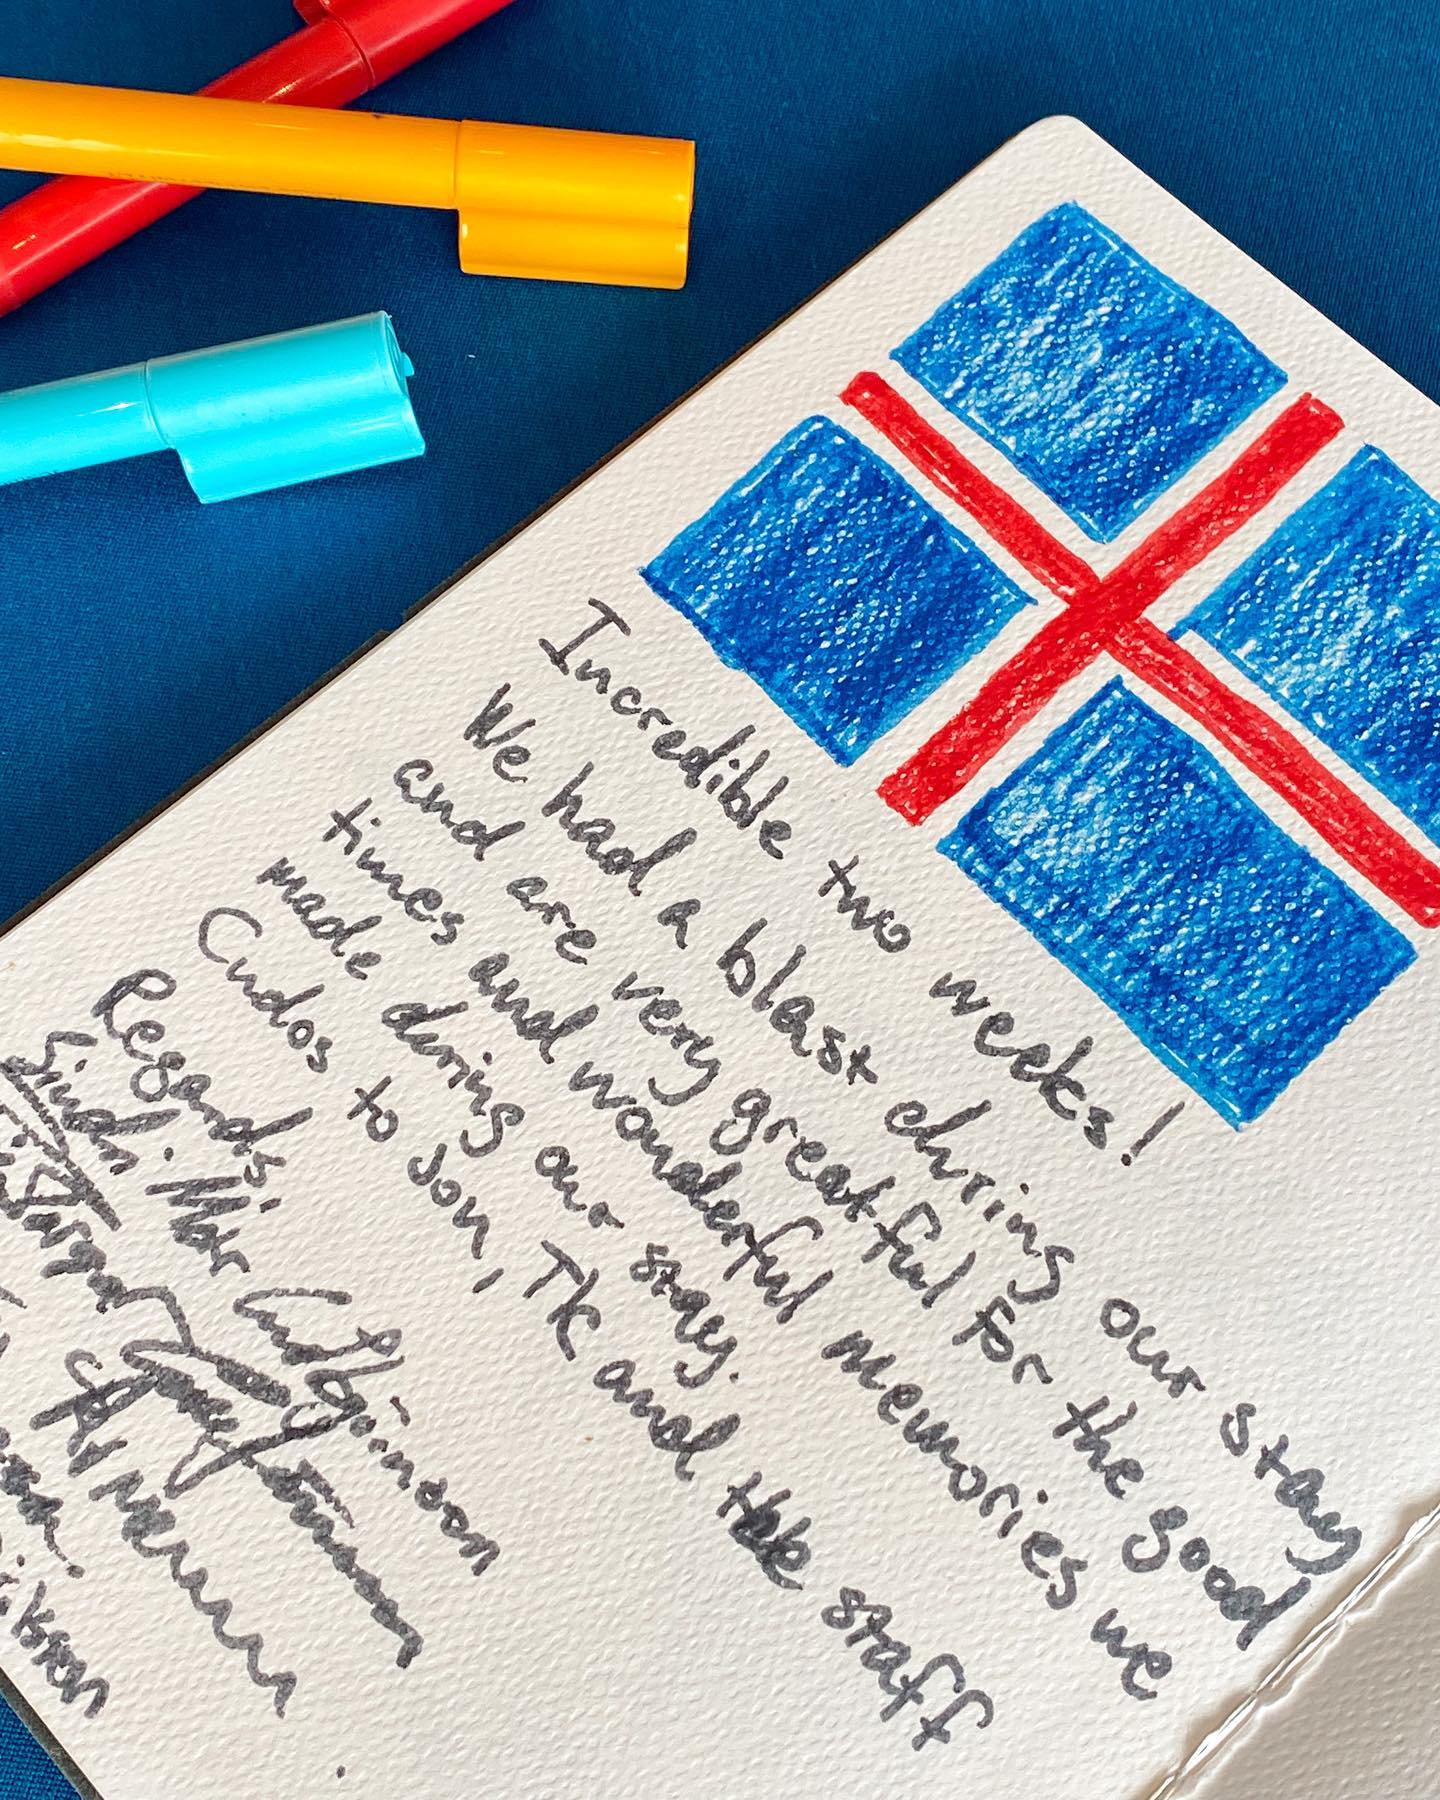 Incredible two weeks!
We had a blast during our stay
and are very greatful for the good
times and wonderful memories we
made during our stay.
Cudos to jon, TK and the staff
Regards,
Sindri Már